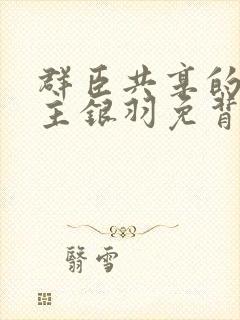 群臣共享的
主银羽免背
翳雪